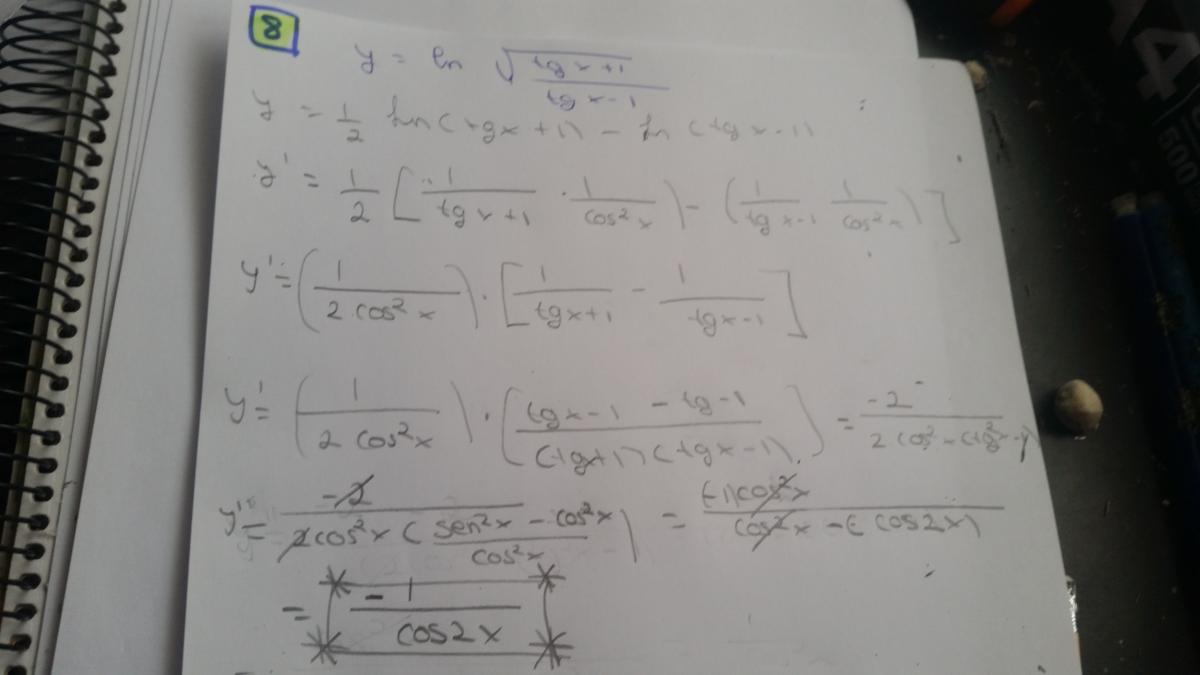 8
y = ln √((tg x + 1)/(tg x - 1))
y = 1/2 ln(tgx + 1) - ln(tgx - 1)
y' = 1/2 [ 1/(tg x + 1) · 1/(cos² x) ) - ( 1/(tgx-1) 1/(cos² x) ) ]
y' = ( 1/(2 cos² x) ) · [ 1/(tgx+1) - 1/(tgx-1) ]
y' = ( 1/(2 cos²x) ) · ( (tgx-1 - tg-1)/((tgx+1)(tgx-1)) ) = -2/(2 cos² x (tg²x - 1)
y' = -2/(2cos²x ( (sen²x - cos²x)/(cos²x) ) = ((-1)cos²x)/(cos²x -( cos2x)
= -1/(cos2x)
A4
500